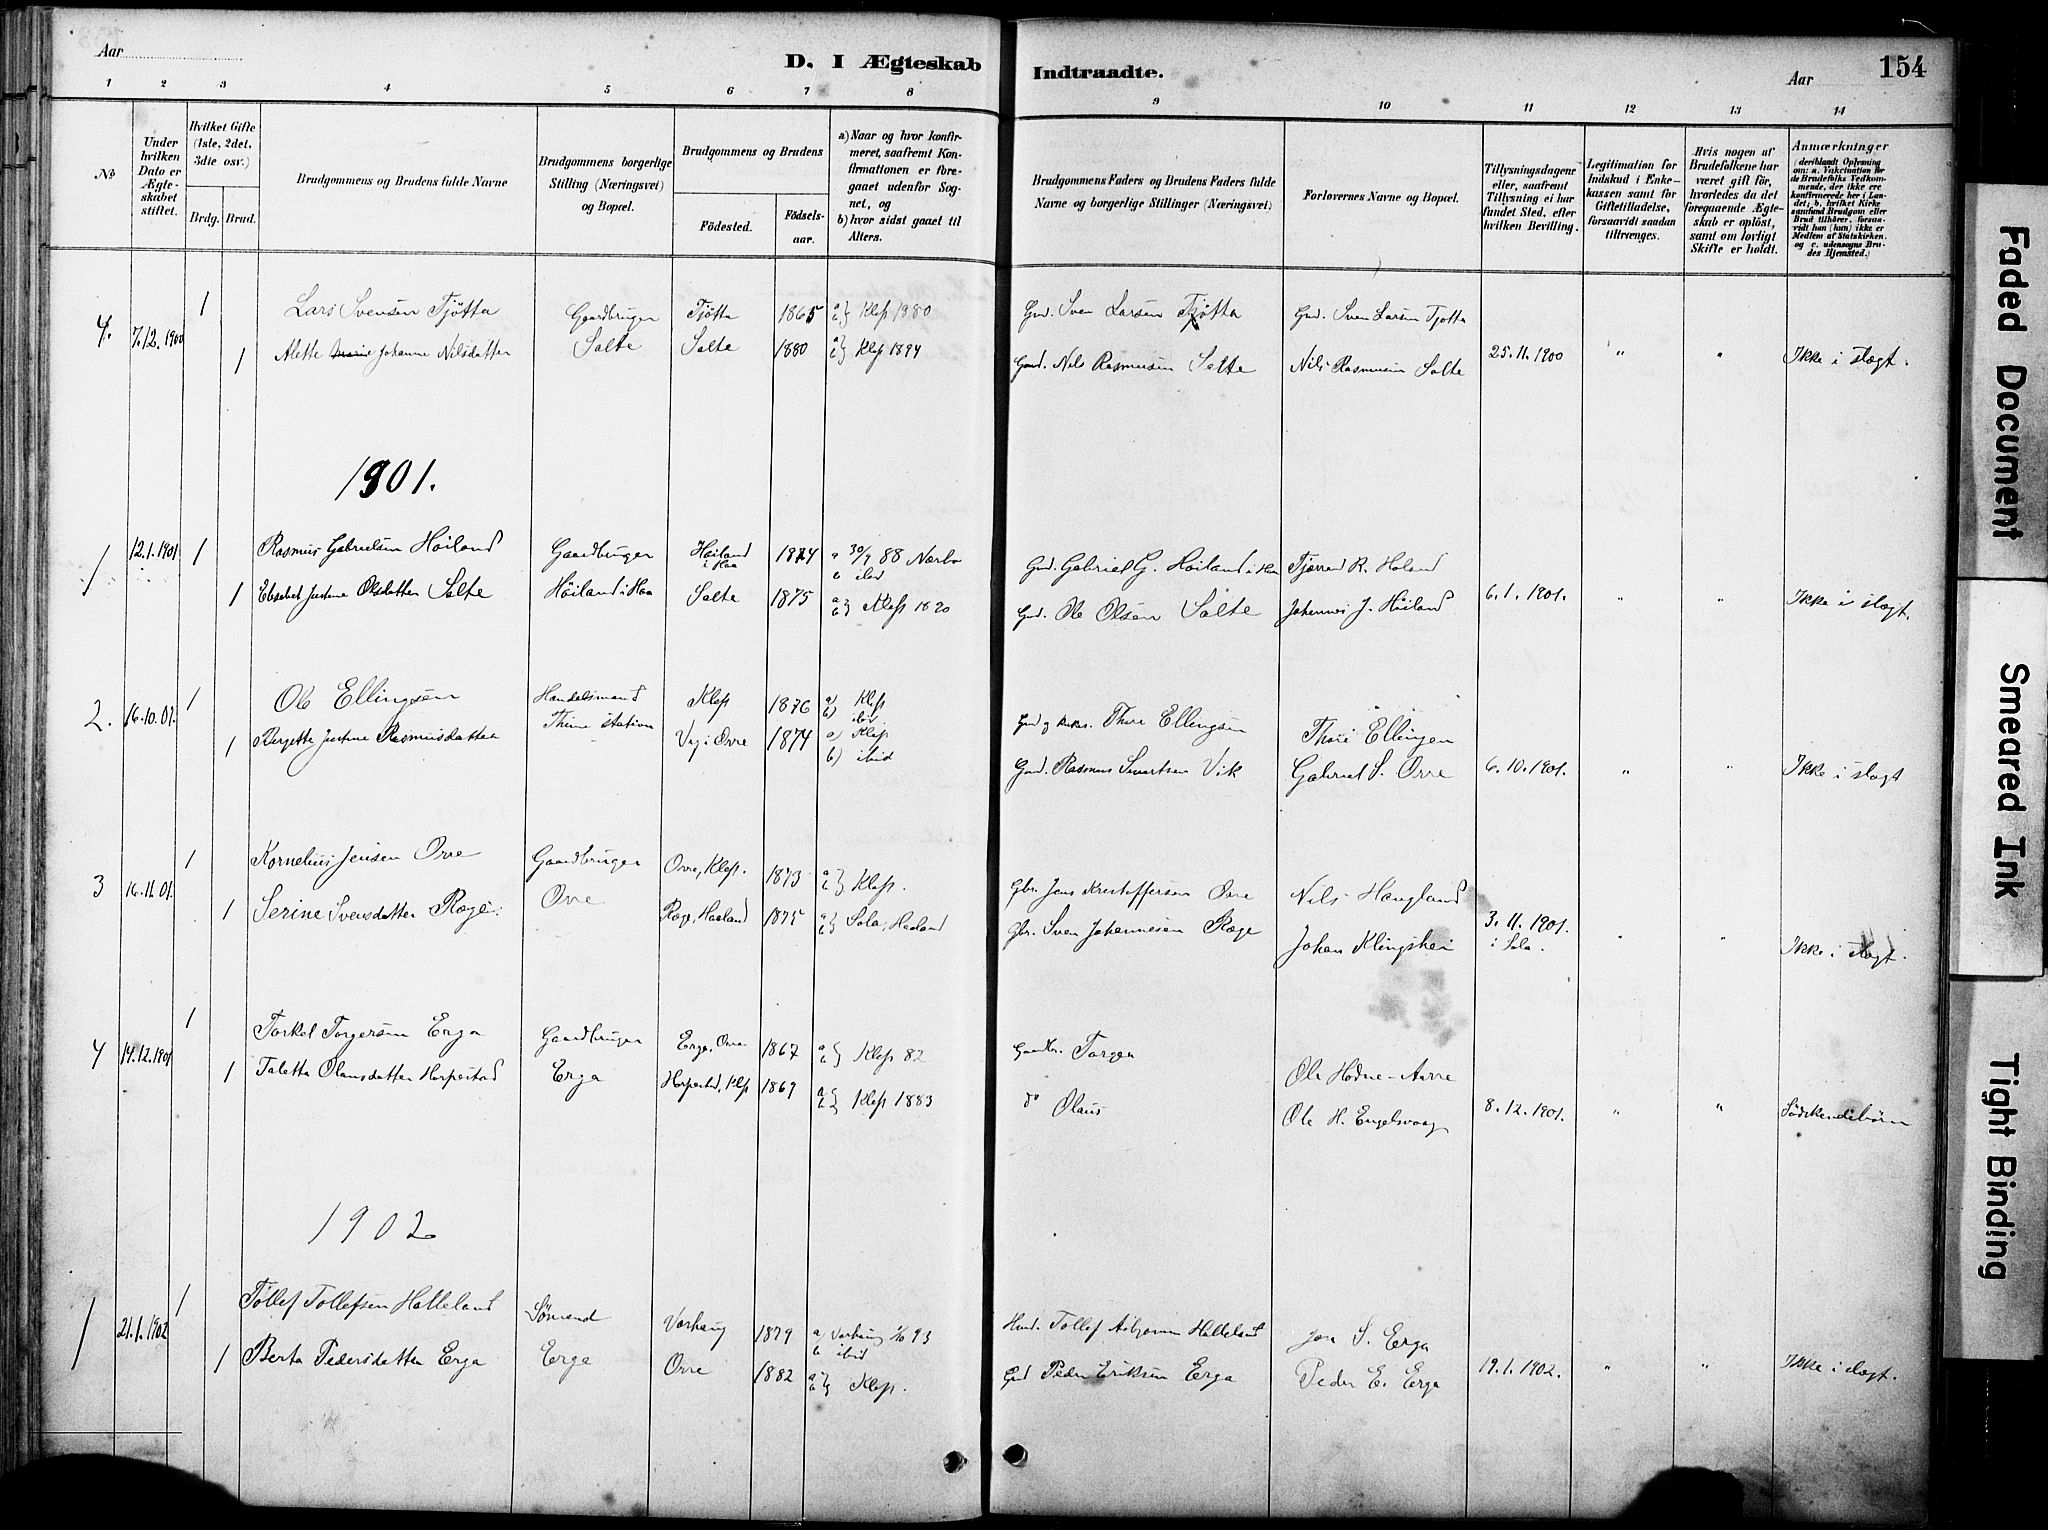 Aar
D. I Ægteskab Indtraadte.
Aar
154
1 2 3 4 5 6 7 8 9 10 11 12 13 14
No
Under hvilken Dato er Ægteskabet stiftet.
Hvilket Gifte (1ste, 2det, 3die osv.)
Brdg. Brud.
Brudgommens og Brudens fulde Navne
Brudgommens borgerlige Stilling (Næringsvei) og Bopæl.
Brudgommens og Brudens
Fødested.
Fødselsaar.
a) Naar og hvor konfirmeret, saafremt Konfirmationen er foregaaet udenfor Sognet, og
b) hvor sidst gaaet til Alters.
Brudgommens Faders og Brudens Faders fulde Navne og borgerlige Stillinger (Næringsvei)
Forlovernes Navne og Bopæl.
Tillysningsdagene eller, saafremt Tillysning ei har fundet Sted, efter hvilken Bevilling.
Legitimation for Indskud i Enkekassen samt for Giftetilladelse, forsaavidt saadan tiltrænges.
Hvis nogen af Brudefolkene har været gift før, hvorledes da det foregaaende Ægteskab er opløst, samt om lovligt Skifte er holdt.
Anmærkninger
(deriblandt Oplysning om: a. Vakcination for de Brudefolks Vedkommende, der ikke ere konfirmerede her i Landet; b. hvilket Kirkesamfund Brudgom eller Brud tilhører, forsaavidt han (hun) ikke er Medlem af Statskirken, og c. udensogns Brudes Hjemsted.)
4. 7./12. 1900 1 Lars Svensen Tjøtta Gaardbruger Tjøtta 1865 a b} Klep 1980 Gmd. Sven Larsen Tjøtta Gmd. Sven Larsen Tjotta
1 Alette Johanne Nilsdatter Salte Salte 1880 a b} Klep 1894 Gmd. Nils Rasmussen Salte Nils Rasmusen Salte 25. 11. 1900 " " Ikke i slægt.
1901.
1 12.1.1901 1 Rasmus Gabrielsen Høiland Gaardbruger Høiland i Haa 1874 a 30/9 88 Nærbo b ibid Gmd. Gabriel G. Høiland i Haa R. Holand
1 Elisabet Justine Olsdatter Salte Høiland i Haa Salte 1875 a b} Klep 1820 Gmd. Ole Olsen Salte Johannes J. Høiland 6. 1. 1901. " " Ikke i slægt.
2. 16.10.01. 1 Ole Ellingsen Handelsmand Klep 1876 a) Klep b) ibid Gmd og Thore Ellingsen Thore Ellingsen
1 Bergette Justine Rasmusdatter Thime station Vig i Orre 1874 a) Klep b) ibid Gmd. Rasmus Sivertsen Vik Gabriel S. Orre 6. 10. 1901. " " Ikke i slægt
3 16.11.01. 1 Kornelius Jensen Orre Gaardbruger Orre, Klep. 1873 a b} Klep. Gbr. Jens Kristoffersen Orre Nils Haugland
1 Serine Svensdatter Ræge. Orre Ræge, Haaland 1875 a b} Sola, Haaland Gbr. Sven Johannesen Ræge Johan Klingshei 3. 11. 1901. i Sola. " " Ikke i slægt.
4 14.12.1901 1 Torkel Torgersen Erga Gaardbruger Erga, Orre 1867 a b} Klep 82 Gaardbr. Torger Ole Hodne-Aarre
1 Taletta Olausdatter Horpestad Erga Horpestad, Klep 1869 a b} Klep 1883 do Olaus Ole H. Engelsvaag 8. 12. 1901. " " Sødskendebørn
1902
1 21.1.1902 1 Tollef Tollefsen Halleland Sømand Varhaug 1879 a) Varhaug 1/10 93 b ibid Hmd. Tollef Halleland S. Erga
1 Berta Pedersdatter Erga Erge Orre 1882 a b} Klep. Gmd Peder Eriksen Erga Peder E. Erga 19. 1. 1902. " " Ikke i slægt.
Faded Document
Smeared Ink
Tight Binding